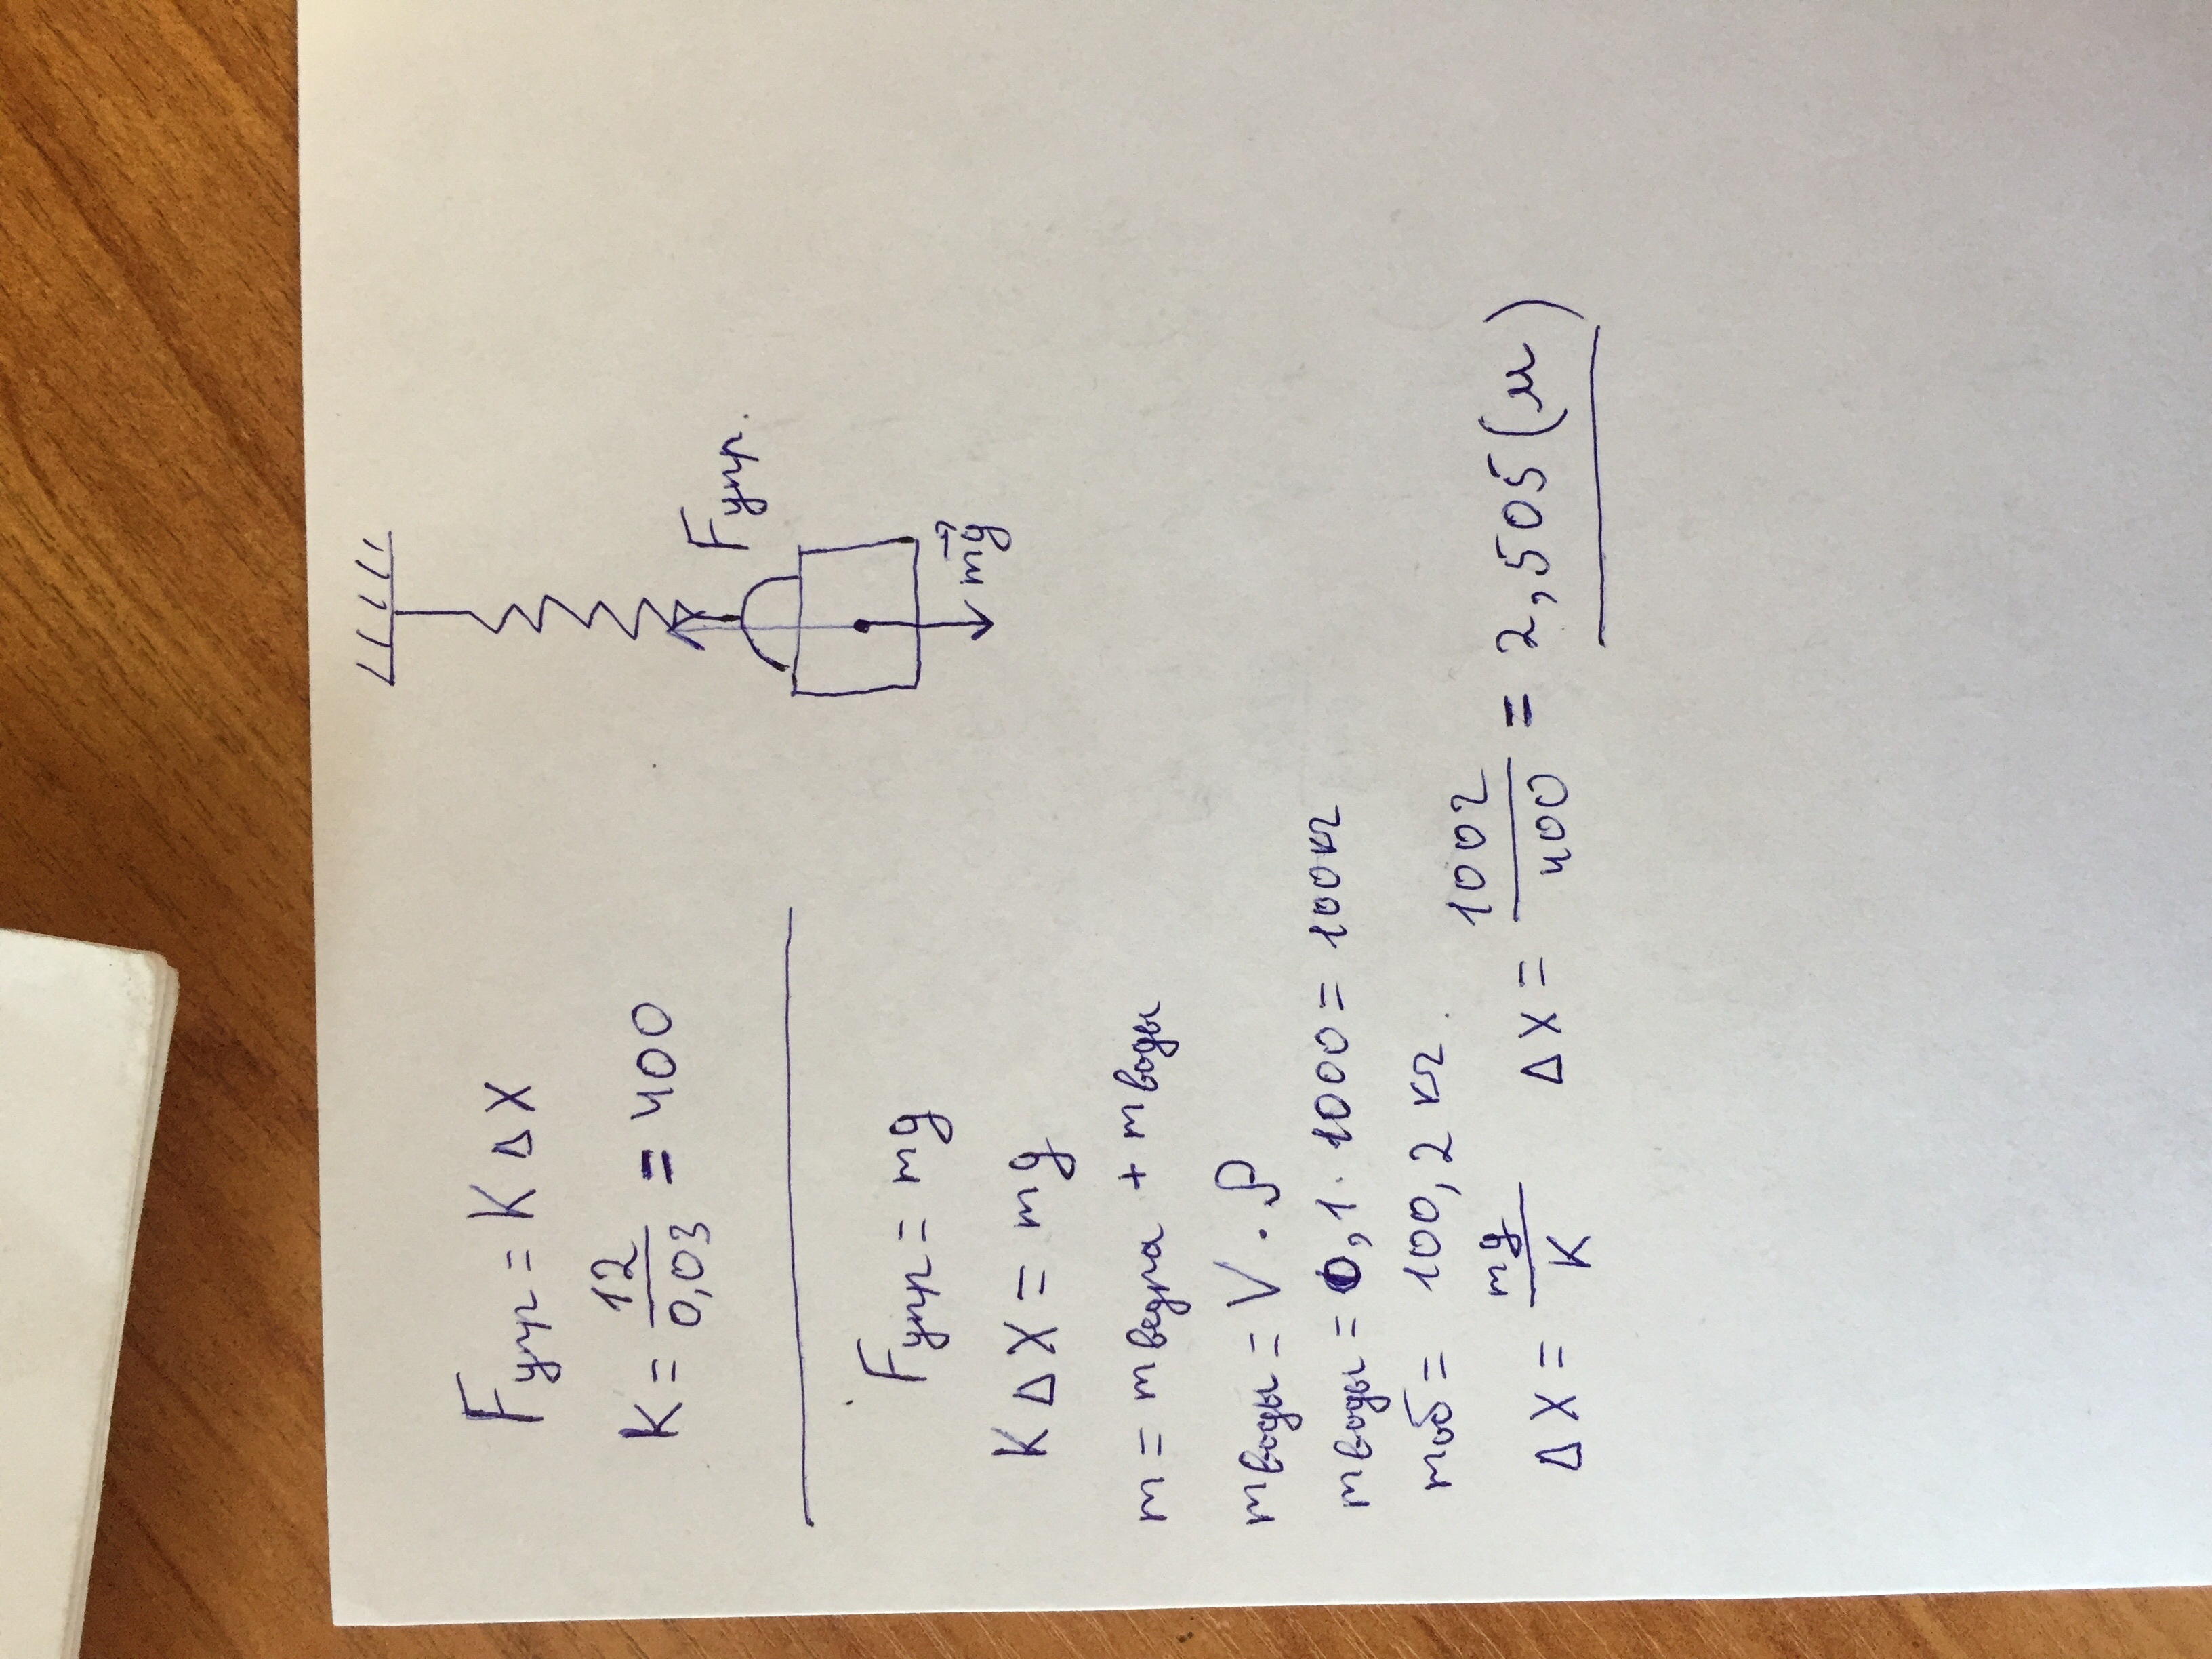 Fупр = K Δ X
K = 12/0,03 = 400
Fупр.
m⃗g
Fупр = mg
K Δ X = mg
m = mведра + mводы
mводы = V · ρ
mводы = 0,1 · 1000 = 100кг
mоб = 100,2 кг.
Δ X = mg/K Δ X = 1002/400 = 2,505 (м)